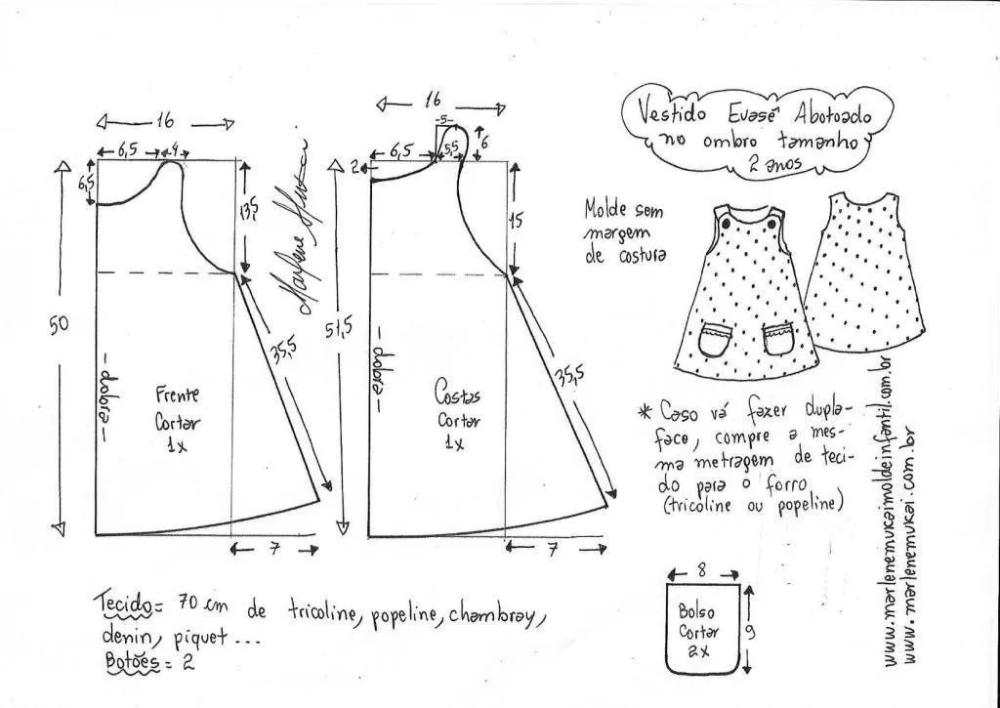 Vestido Evasê Abotoado
no ombro tamanho
2 anos
16
6,5
4
6,5
13,5
50
35,5
dobra
Frente
Cortar
1x
7
Marlene Mukai
16
5
6,5
5,5
6
2
15
51,5
35,5
dobra
Costas
Cortar
1x
7
Molde sem
margem
de costura
* Caso vá fazer dupla-
face, compre a mes-
ma metragem de teci-
do para o forro
(tricoline ou popeline)
8
Bolso
Cortar
2x
9
www.marlenemukaimoldeinfantil.com.br
www.marlenemukai.com.br
Tecido= 70 cm de tricoline, popeline, chambray,
denin, piquet ...
Botões = 2